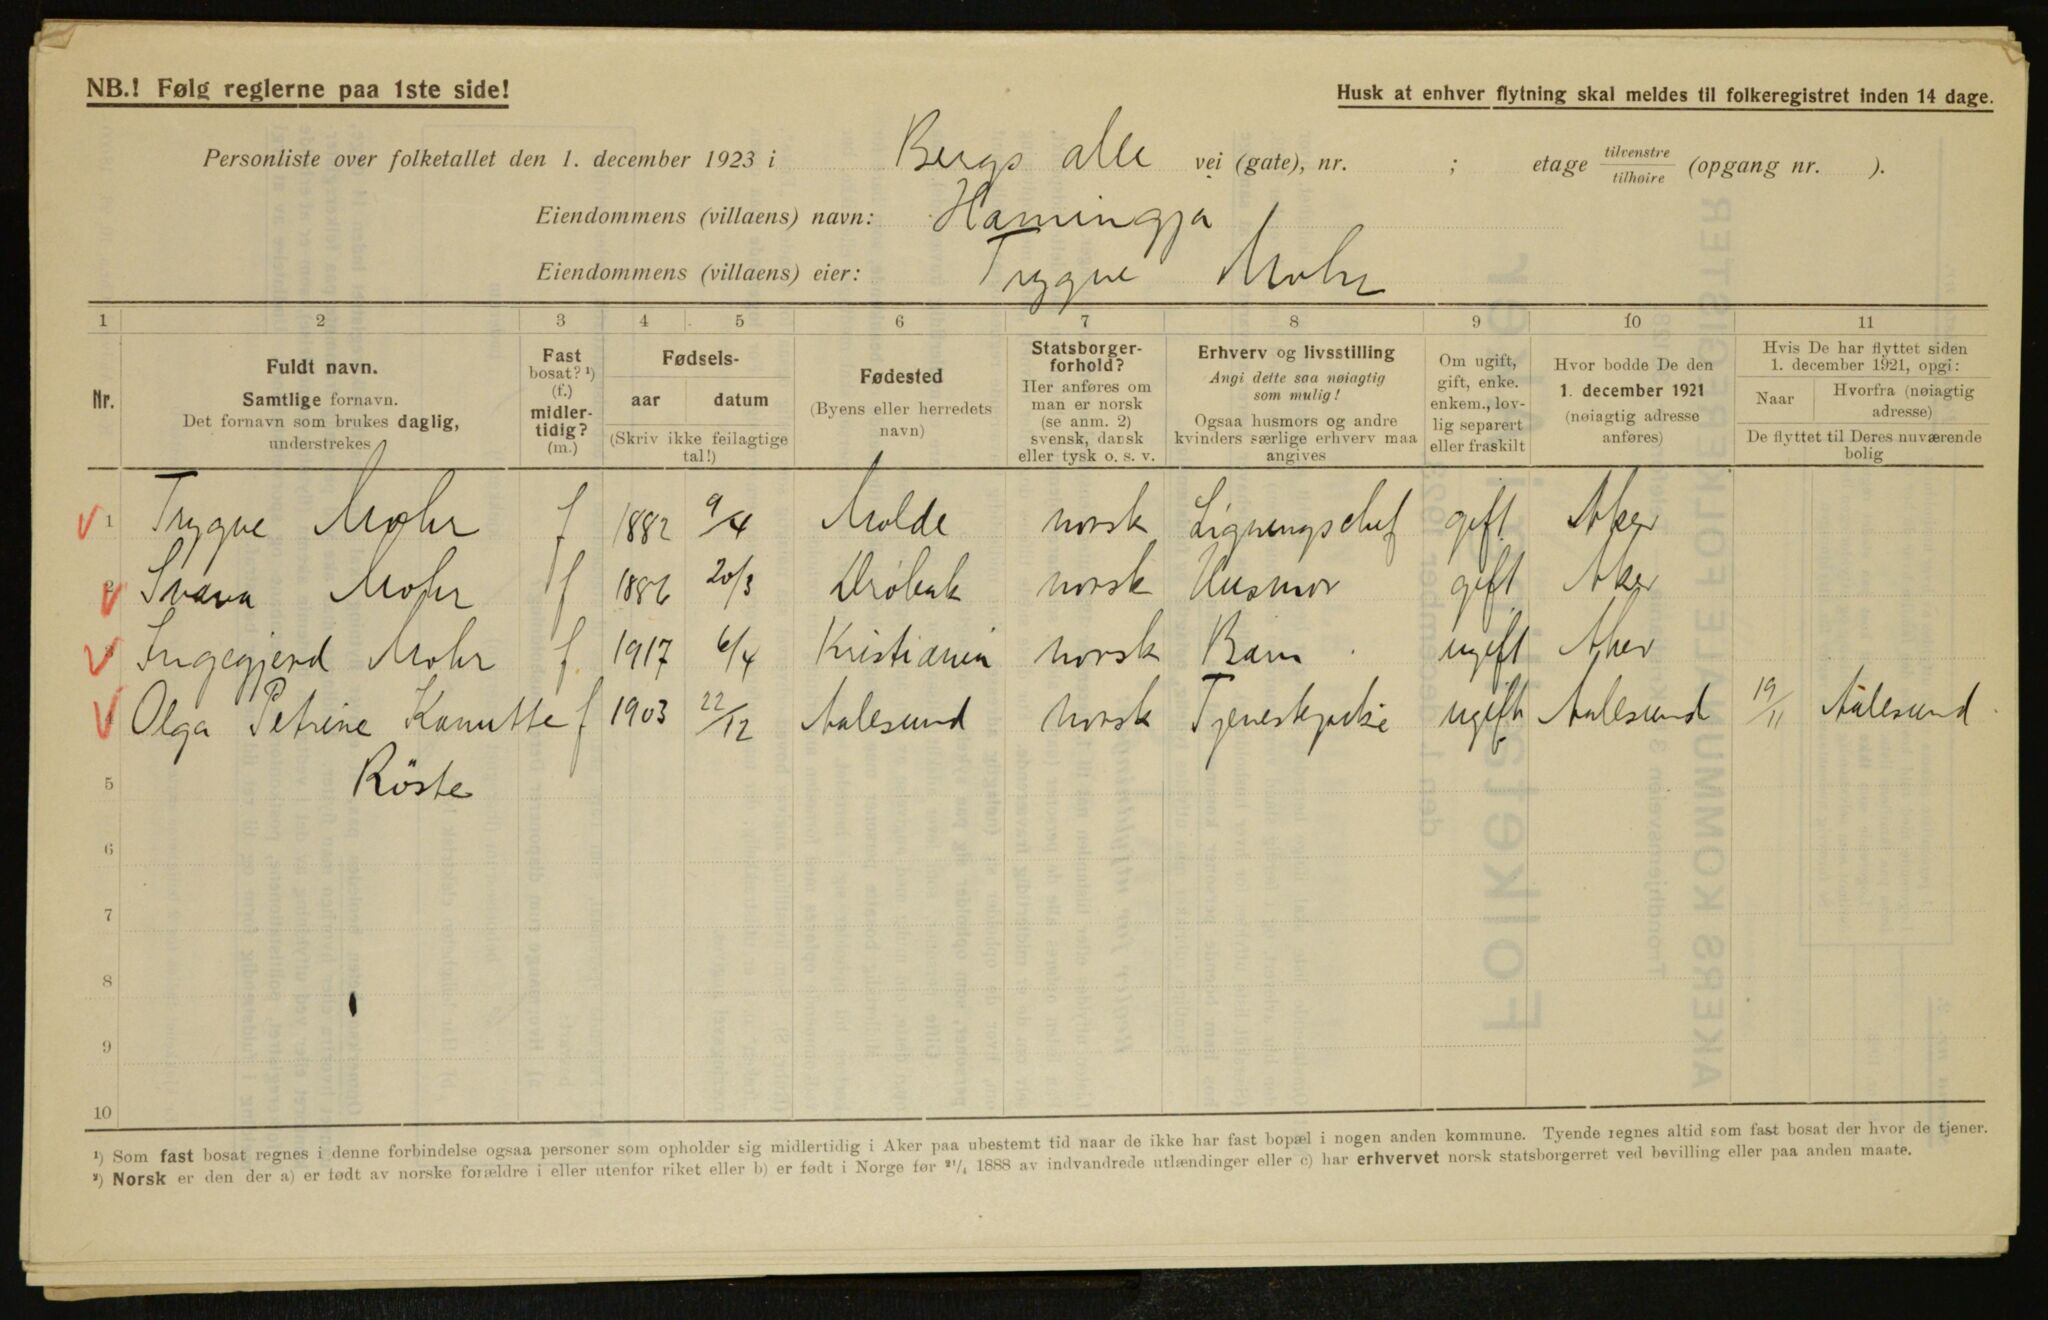 NB.! Følg reglerne paa 1ste side!
Husk at enhver flytning skal meldes til folkeregistret inden 14 dage.
Personliste over folketallet den 1. december 1923 i Bergs alle vei (gate), nr. ; etage tilvenstre/tilhøire (opgang nr. ).
Eiendommens (villaens) navn: Hamingja
Eiendommens (villaens) eier: Trygve Mohr
1 2 3 4 5 6 7 8 9 10 11
Nr.
Fuldt navn.
Samtlige fornavn.
Det fornavn som brukes daglig,
understrekes
Fast
bosat? ¹)
(f.)
midler-
tidig?
(m.)
Fødsels-
aar datum
(Skriv ikke feilagtige
tal!)
Fødested
(Byens eller herredets
navn)
Statsborger-
forhold?
Her anføres om
man er norsk
(se anm. 2)
svensk, dansk
eller tysk o. s. v.
Erhverv og livsstilling
Angi dette saa nøiagtig
som mulig!
Ogsaa husmors og andre
kvinders særlige erhverv maa
angives
Om ugift,
gift, enke.
enkem., lov-
lig separert
eller fraskilt
Hvor bodde De den
1. december 1921
(nøiagtig adresse
anføres)
Hvis De har flyttet siden
1. december 1921, opgi:
Naar Hvorfra (nøiagtig
adresse)
De flyttet til Deres nuværende
bolig
1 Trygve Mohr f 1882 9/4 Molde norsk Ligningschef gift Aker
2 Svava Mohr f 1886 20/3 Drøbak norsk Husmor gift Aker
3 Ingegjerd Mohr f. 1917 6/4 Kristiania norsk Barn ugift Aker
4 Olga Petrine Kanutte f 1903 22/12 Aalesund norsk Tjenestepike ugift Aalesund 19/11 Aalesund
5 Röste
6
7
8
9
10
¹) Som fast bosat regnes i denne forbindelse ogsaa personer som opholder sig midlertidig i Aker paa ubestemt tid naar de ikke har fast bopæl i nogen anden kommune. Tyende regnes altid som fast bosat der hvor de tjener.
²) Norsk er den der a) er født av norske forældre i eller utenfor riket eller b) er født i Norge før ²¹/₄ 1888 av indvandrede utlændinger eller c) har erhvervet norsk statsborgerret ved bevilling eller paa anden maate.